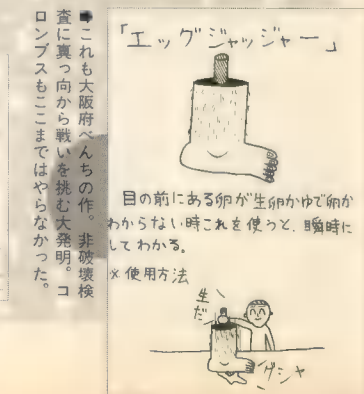 「エッグジャッジャー」
目の前にある卵が生卵かゆで卵か
わからない時これを使うと、瞬時に
してわかる。
※使用方法
生だ
グシャ
➡これも大阪府べんちの作。非破壊検
査に真っ向から戦いを挑む大発明。コ
ロンブスもここまではやらなかった。